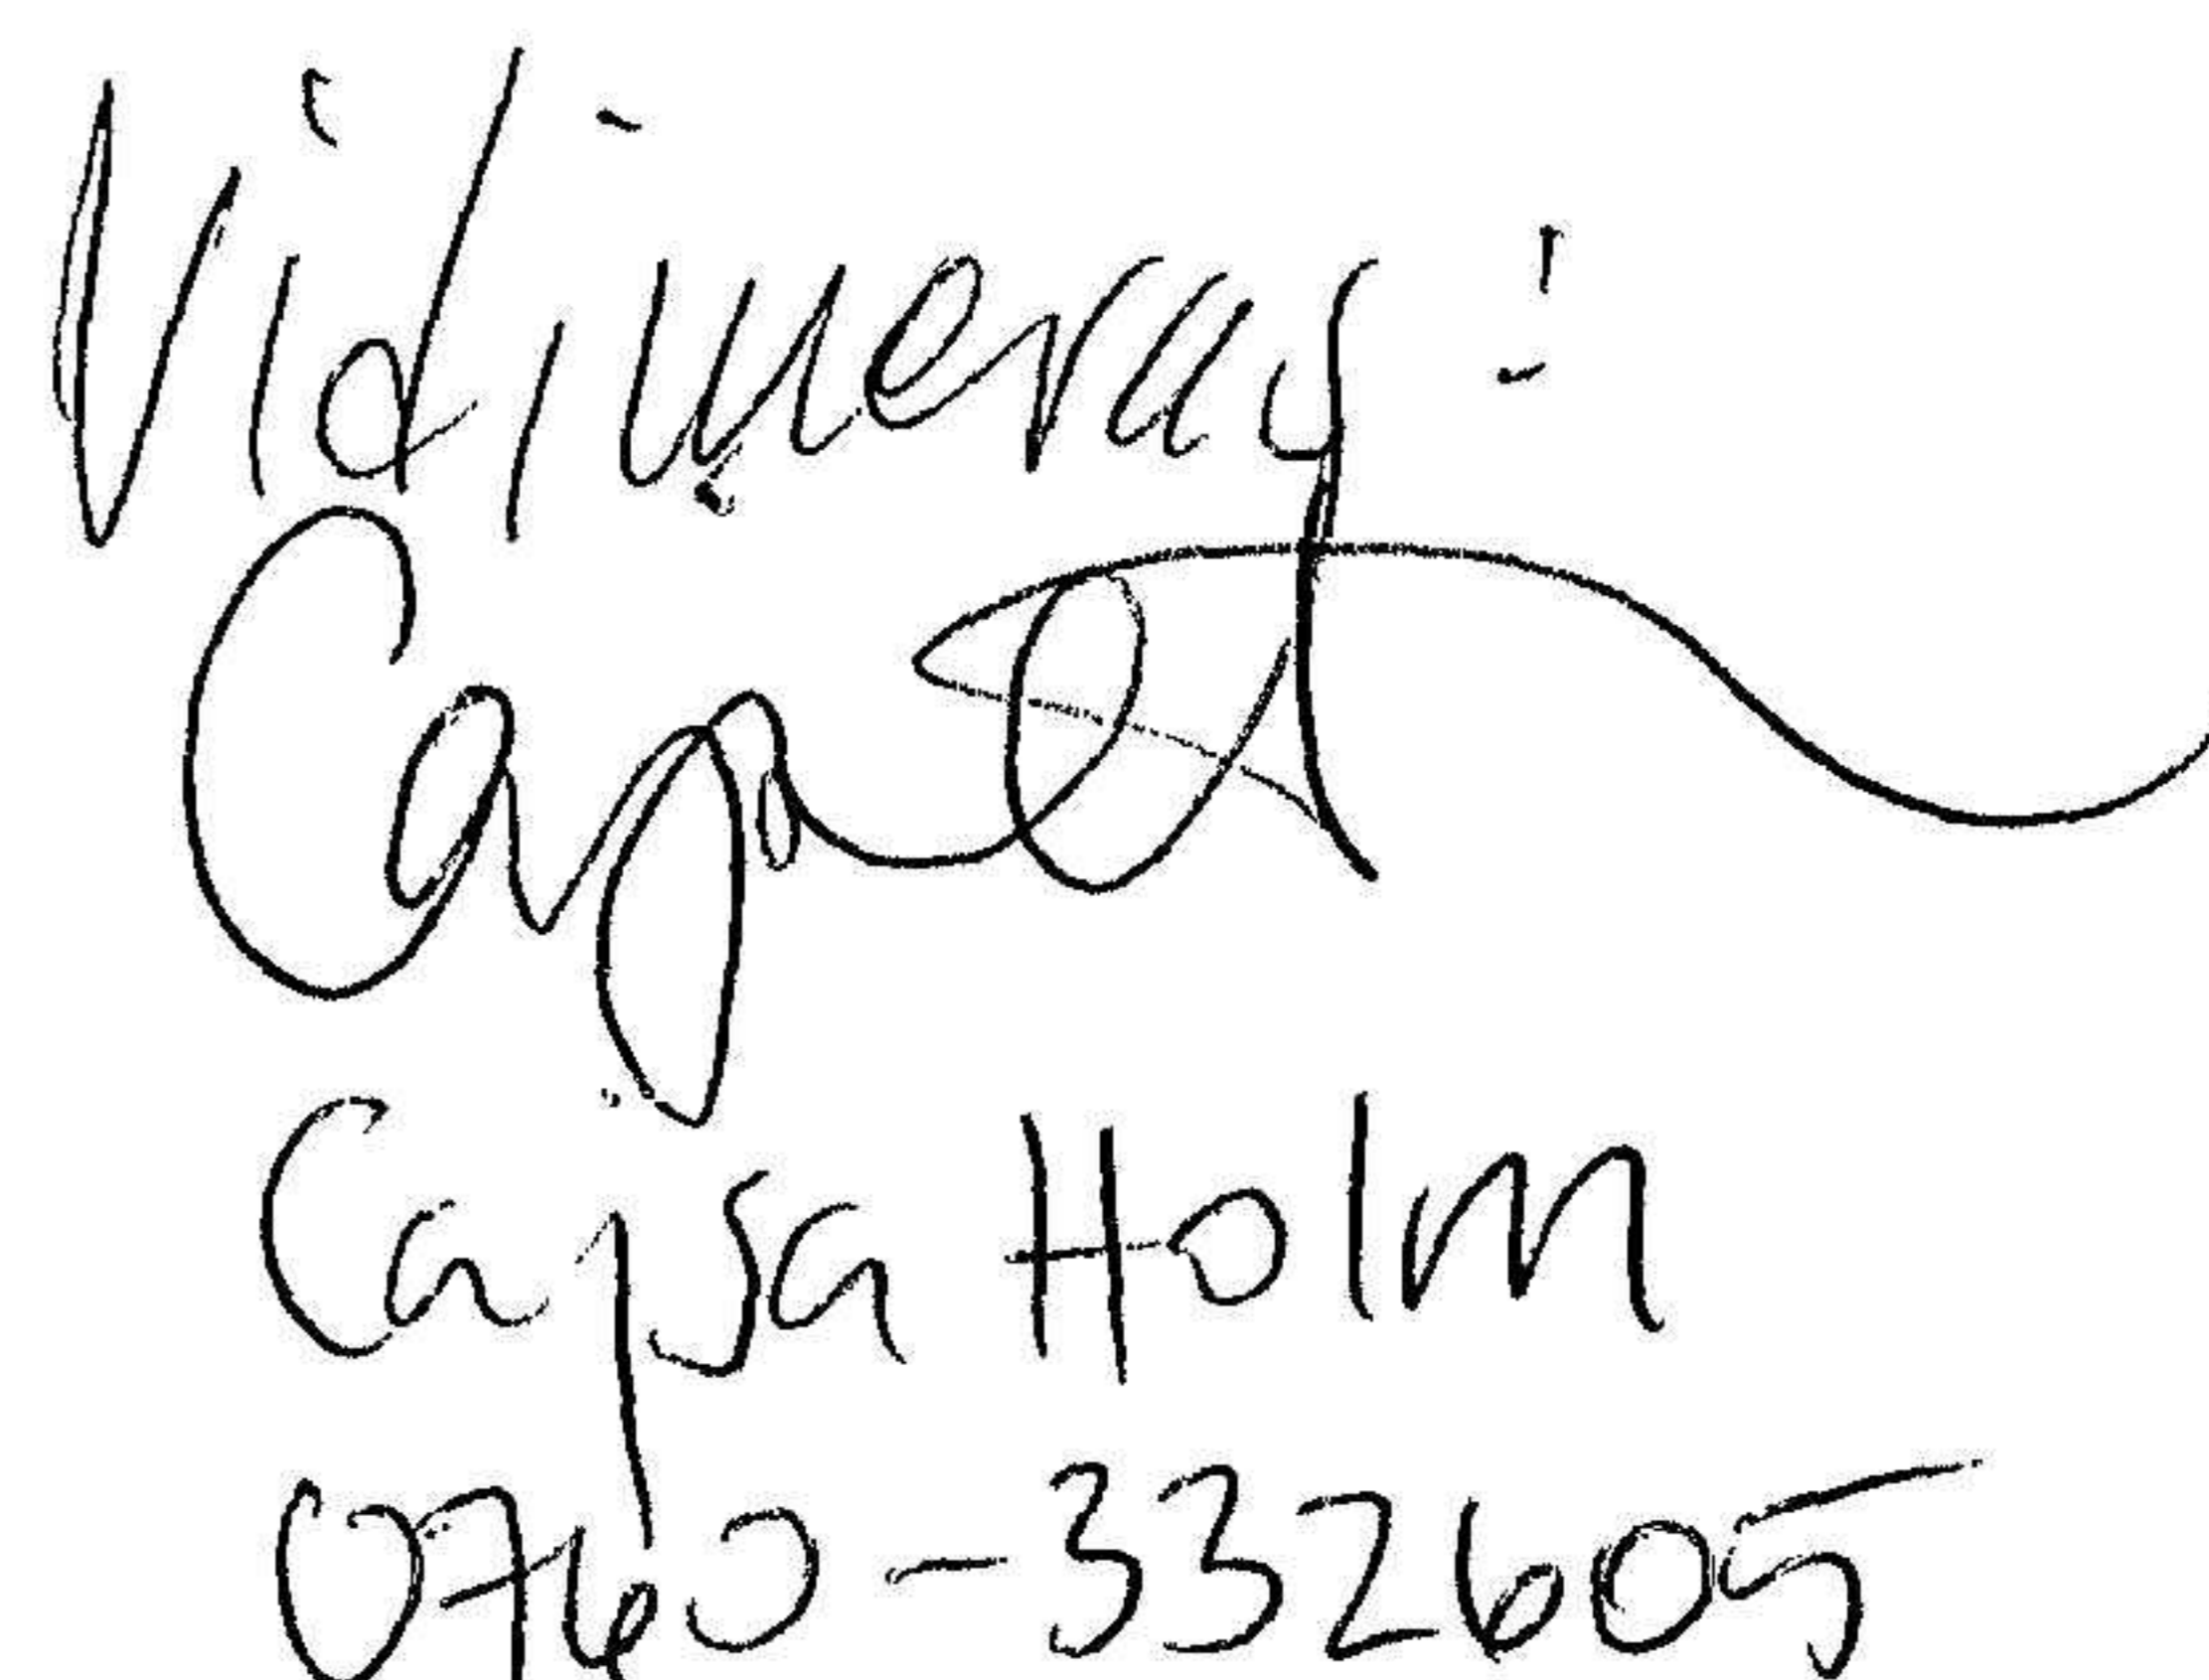 Vidimeras:
Cajsa Holm
0760-332605